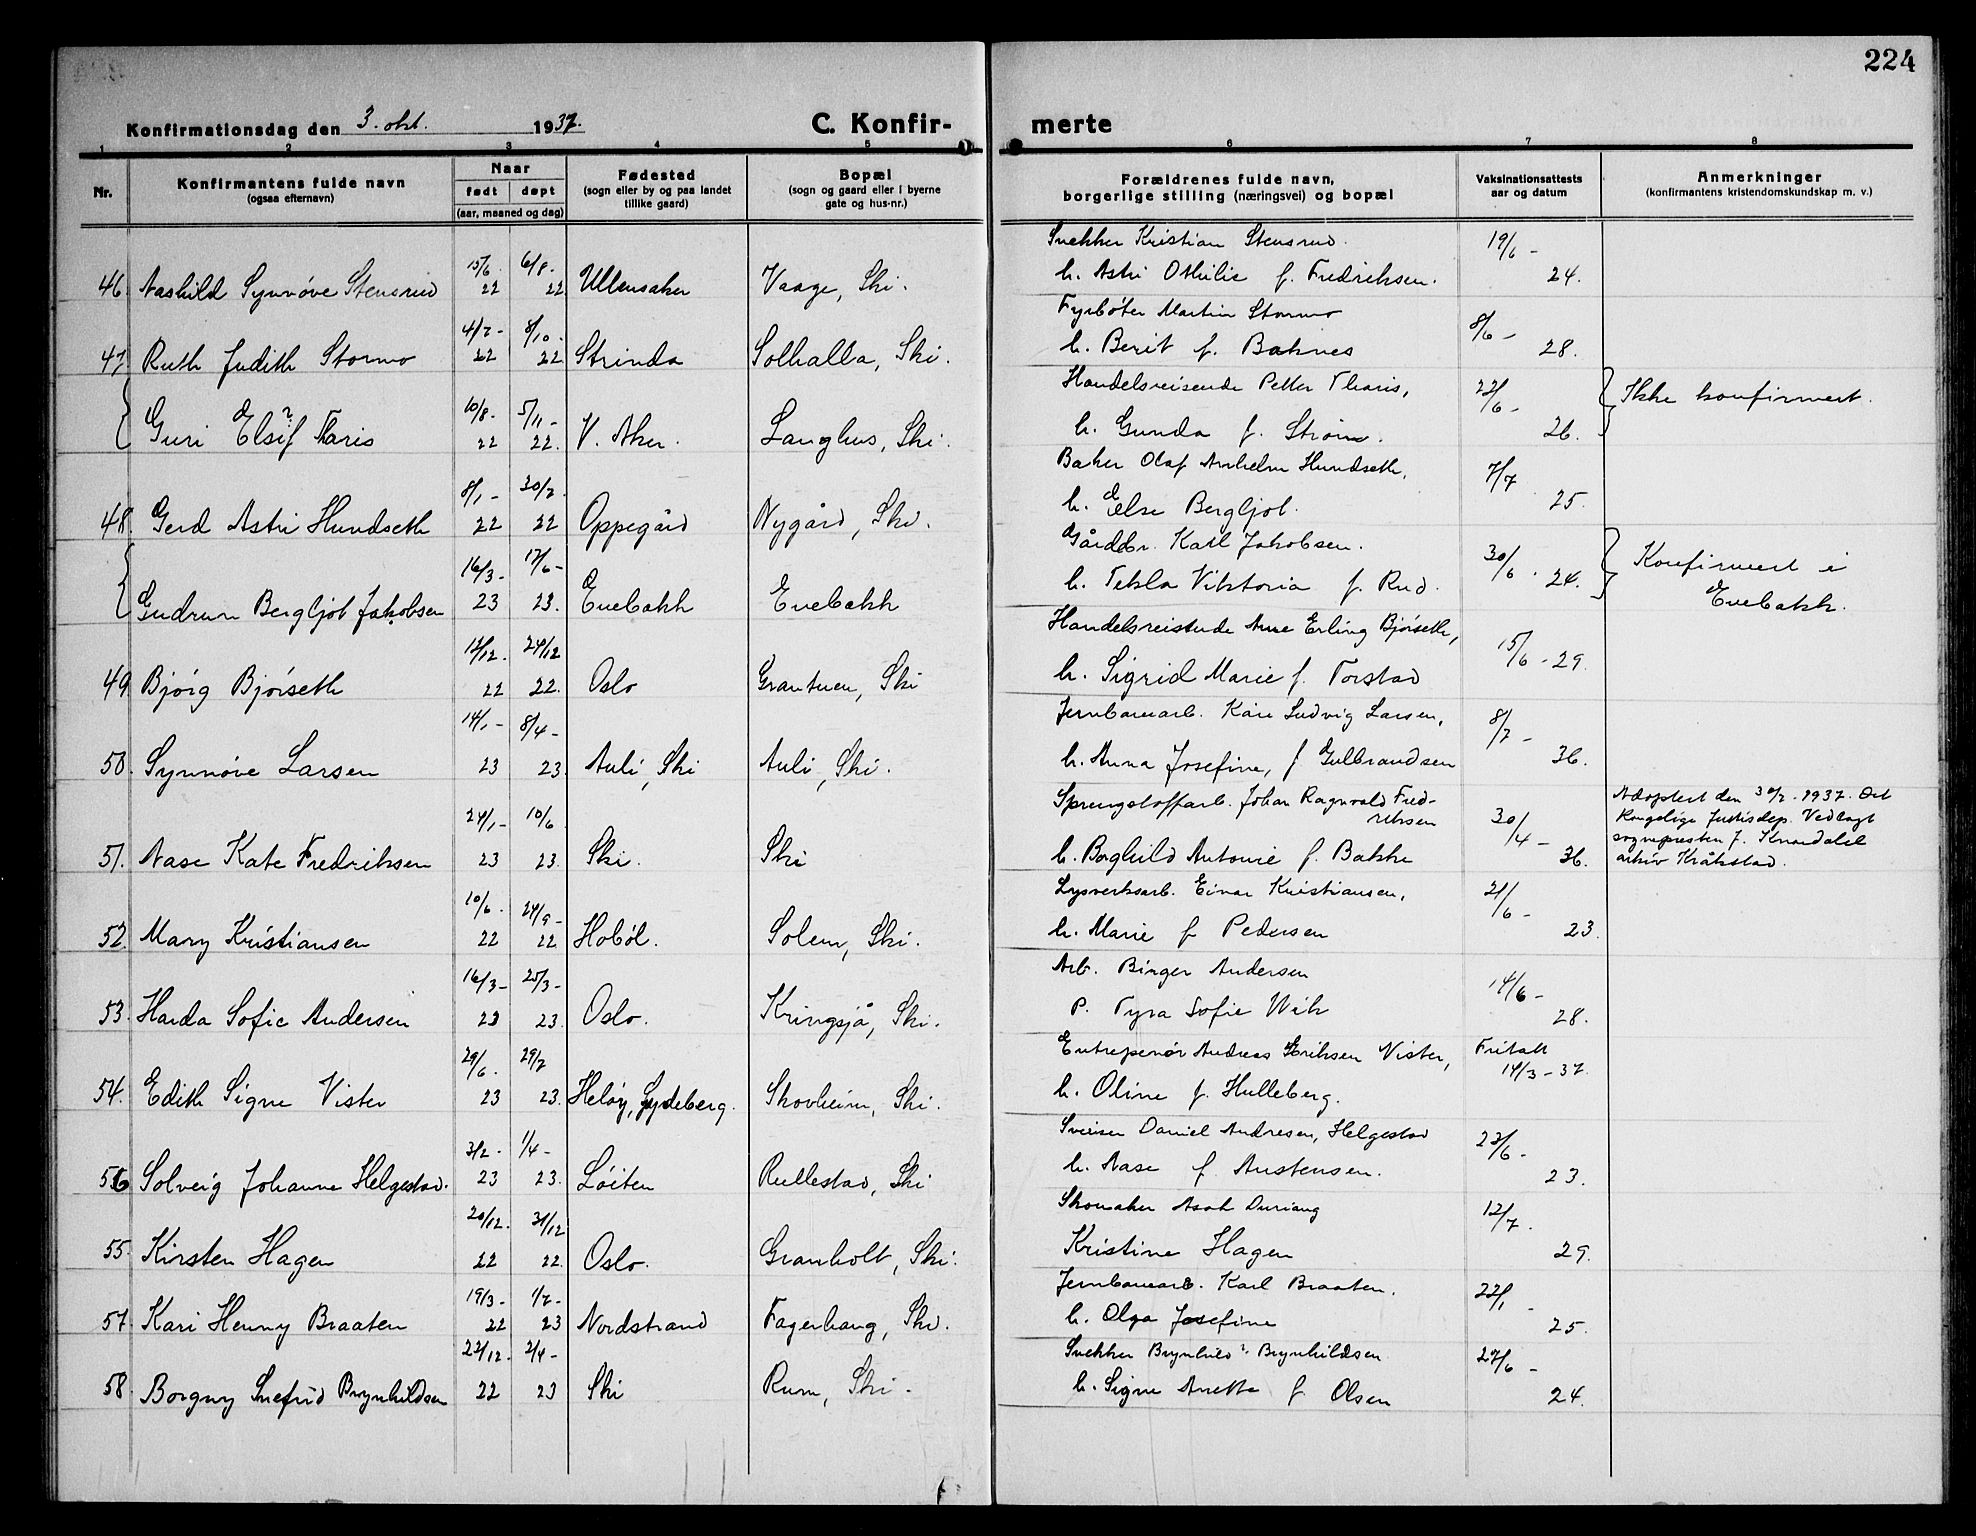 224
Konfirmationsdag den 3. okt. 1937. C. Konfir- merte
1 2 3 4 5 6 7 8
Nr. Konfirmantens fulde navn (ogsaa efternavn) Naar født døpt (aar, maaned og dag) Fødested (sogn eller by og paa landet tillike gaard) Bopæl (sogn og gaard eller i byerne gate og hus-nr.) Forældrenes fulde navn, borgerlige stilling (næringsvei) og bopæl Vaksinationsattests aar og datum Anmerkninger (konfirmantens kristendomskundskap m. v.)
Snekker Kristian Stensrud. 19/6 -
15/6. 6/8.
46. Aashild Synnøve Stensrud 22 22 Ullensaker Vaage, Ski. h. Astri Othilie f. Fredriksen. 24.
Fyrbøter Martin Stormo 8/6 -
4/7 - 8/10.
47. Ruth Judith Stormo 22 22 Strinda Solhalla, Ski. h. Berit f. Baknes 28.
Handelsreisende Petter Tharis, 22/6 - Ikke konfirmert.
10/8. 5/11 -
Guri Elsif ? Tharis 22 22. V. Aker. Langhus, Ski. h. Gunda f. Strøm. 26.
Baker Olaf Anshelm Hundseth, 7/7
8/1 - 30/7.
48. Gerd Astri Hundseth 22 22 Oppegård Nygård, Ski. h. Else Bergljot. 25.
Gårdbr. Karl Jakobsen. 30/6 . 24. Konfirmert i
16/3 - 17/6 -
h. Tekla Viktoria f. Rud. Enebakk.
Gudrun Bergljot Jakobsen 23 23. Enebakk Enebakk
Handelsreisende Arne Erling Bjørseth, 15/6 - 29.
12/12. 24/12
49. Bjørg Bjørseth 22 22. Oslo Grantuen, Ski h. Sigrid Marie f. Torstad
Jernbanearb. Kåre Ludvig Larsen, 8/7 -
14/1 - 8/4 -
50. Synnøve Larsen 23 23. Auli, Ski Auli, Ski. h. Anna Josefine, f Gulbrandsen 36.
Sprengstoffarb. Johan Ragnvald Fred- 30/4 - Adoptert den 30/7. 1937. Det
riksen kongelige Justisdep. Vedlagt
24/1 - 10/6 sognepresten f.
51. Aase Kate Fredriksen 23 23. Ski. Ski h. Borghild Antonie f. Bakke 36. arkiv Kråkstad.
Lysverksarb. Einar Kristiansen, 21/6 -
10/6. 24/9 -
52. Mary Kristiansen 22 22 Hobøl. Solem, Ski. h. Marie f Pedersen 23.
Arb. Birger Andersen 14/6 -
16/3 - 25/3 -
53. Harda Sofie Andersen 23 23. Oslo. Kringsjå, Ski. P. Tyra Sofie Wik 28.
Entreprenør Andreas Eriksen Vister, Fritatt
29/6. 29/7 14/3 - 37.
54. Edith Signe Vister 23 23. Heløy, Spydeberg. Skovheim, Ski. h. Oline f. Hulleberg.
Sveiser Daniel Andresen, Helgestad 23/6 -
3/2 - 1/4 -
56 Solveig Johanne Helgestad. 23 23. Løiten Rullestad, Ski h. Aase f. Austensen. 23.
Skomaker Asak Duriang 12/7.
20/12. 31/12
55. Kirsten Hagen 22 22. Oslo. Granholt, Ski. Kristine Hagen 29.
Jernbanearb. Karl Braaten. 22/1 -
19/3 - 1/7 -
57. Kari Henny Braaten 22 23 Nordstrand Fagerhaug, Ski. h. Olga Josefine 25.
Snekker Brynhild ? Brynhildsen 27/6 -
22/12. 2/4 -
58. Borgny Snefrid Brynhildsen 22 23 Ski Rum, Ski. h. Signe Anette f Olsen 24.